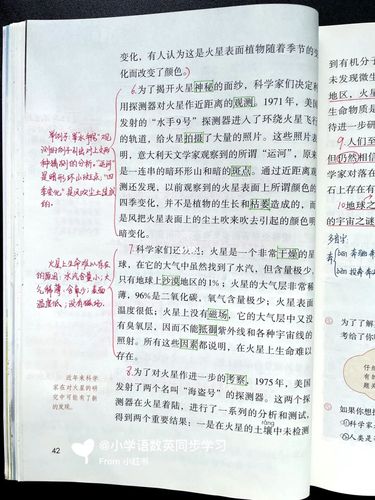 变化，有人认为这是火星表面植物随着季节的变
化而改变了颜色。
6.为了揭开火星神秘的面纱，科学家们决定利
用探测器对火星作近距离的观测。1971年，美国
发射的“水手9号”探测器进入了环绕火星飞行
的轨道，给火星拍摄了大量的照片。这些照片表
明，意大利天文学家观察到的所谓“运河”，原来
是一连串的暗环形山和暗的斑点。通过近距离观
测还发现，以前观察到的火星表面上所谓颜色的
四季变化，并不是植物的生长和枯萎造成的，而
是风把火星表面上的尘土吹来吹去引起的颜色明
暗变化。
7.科学家们还发现：火星是一个非常干燥的星
球，在它的大气中虽然找到了水汽，但含量极少，
只有地球上沙漠地区的1%；火星的大气层非常稀
薄，96%是二氧化碳，氧气含量极少；火星表面
温度很低；火星上没有磁场，它的大气层中又没
有臭氧层，因而不能抵御紫外线和各种宇宙线的
照射。所有这些因素都说明，在火星上生命难以
存在。
8.为了对火星作进一步的考察，1975年，美国
发射了两个名叫“海盗号”的探测器。这两个探
测器在火星着陆，进行了一系列的分析和测试，
得到两个重要结果：一是在火星的土壤中未检测
rǎng
火星上生命难以存在
的原因：水汽含量小；大
气稀薄，含氧少；表面
温度低；没有磁场。
近年来科学
家在对火星的研
究中可能有了新
的发现。
42
@小学语数英同步学习
From 小红书
到有机分子
未发现微生
地区，火星
生命物质是
待进一步研
9.人们至
但仍然相信
学家对落在
石上存在有
10地球之
的宇宙之谜
为了了
考给了你
如果你想
科学家
人类是